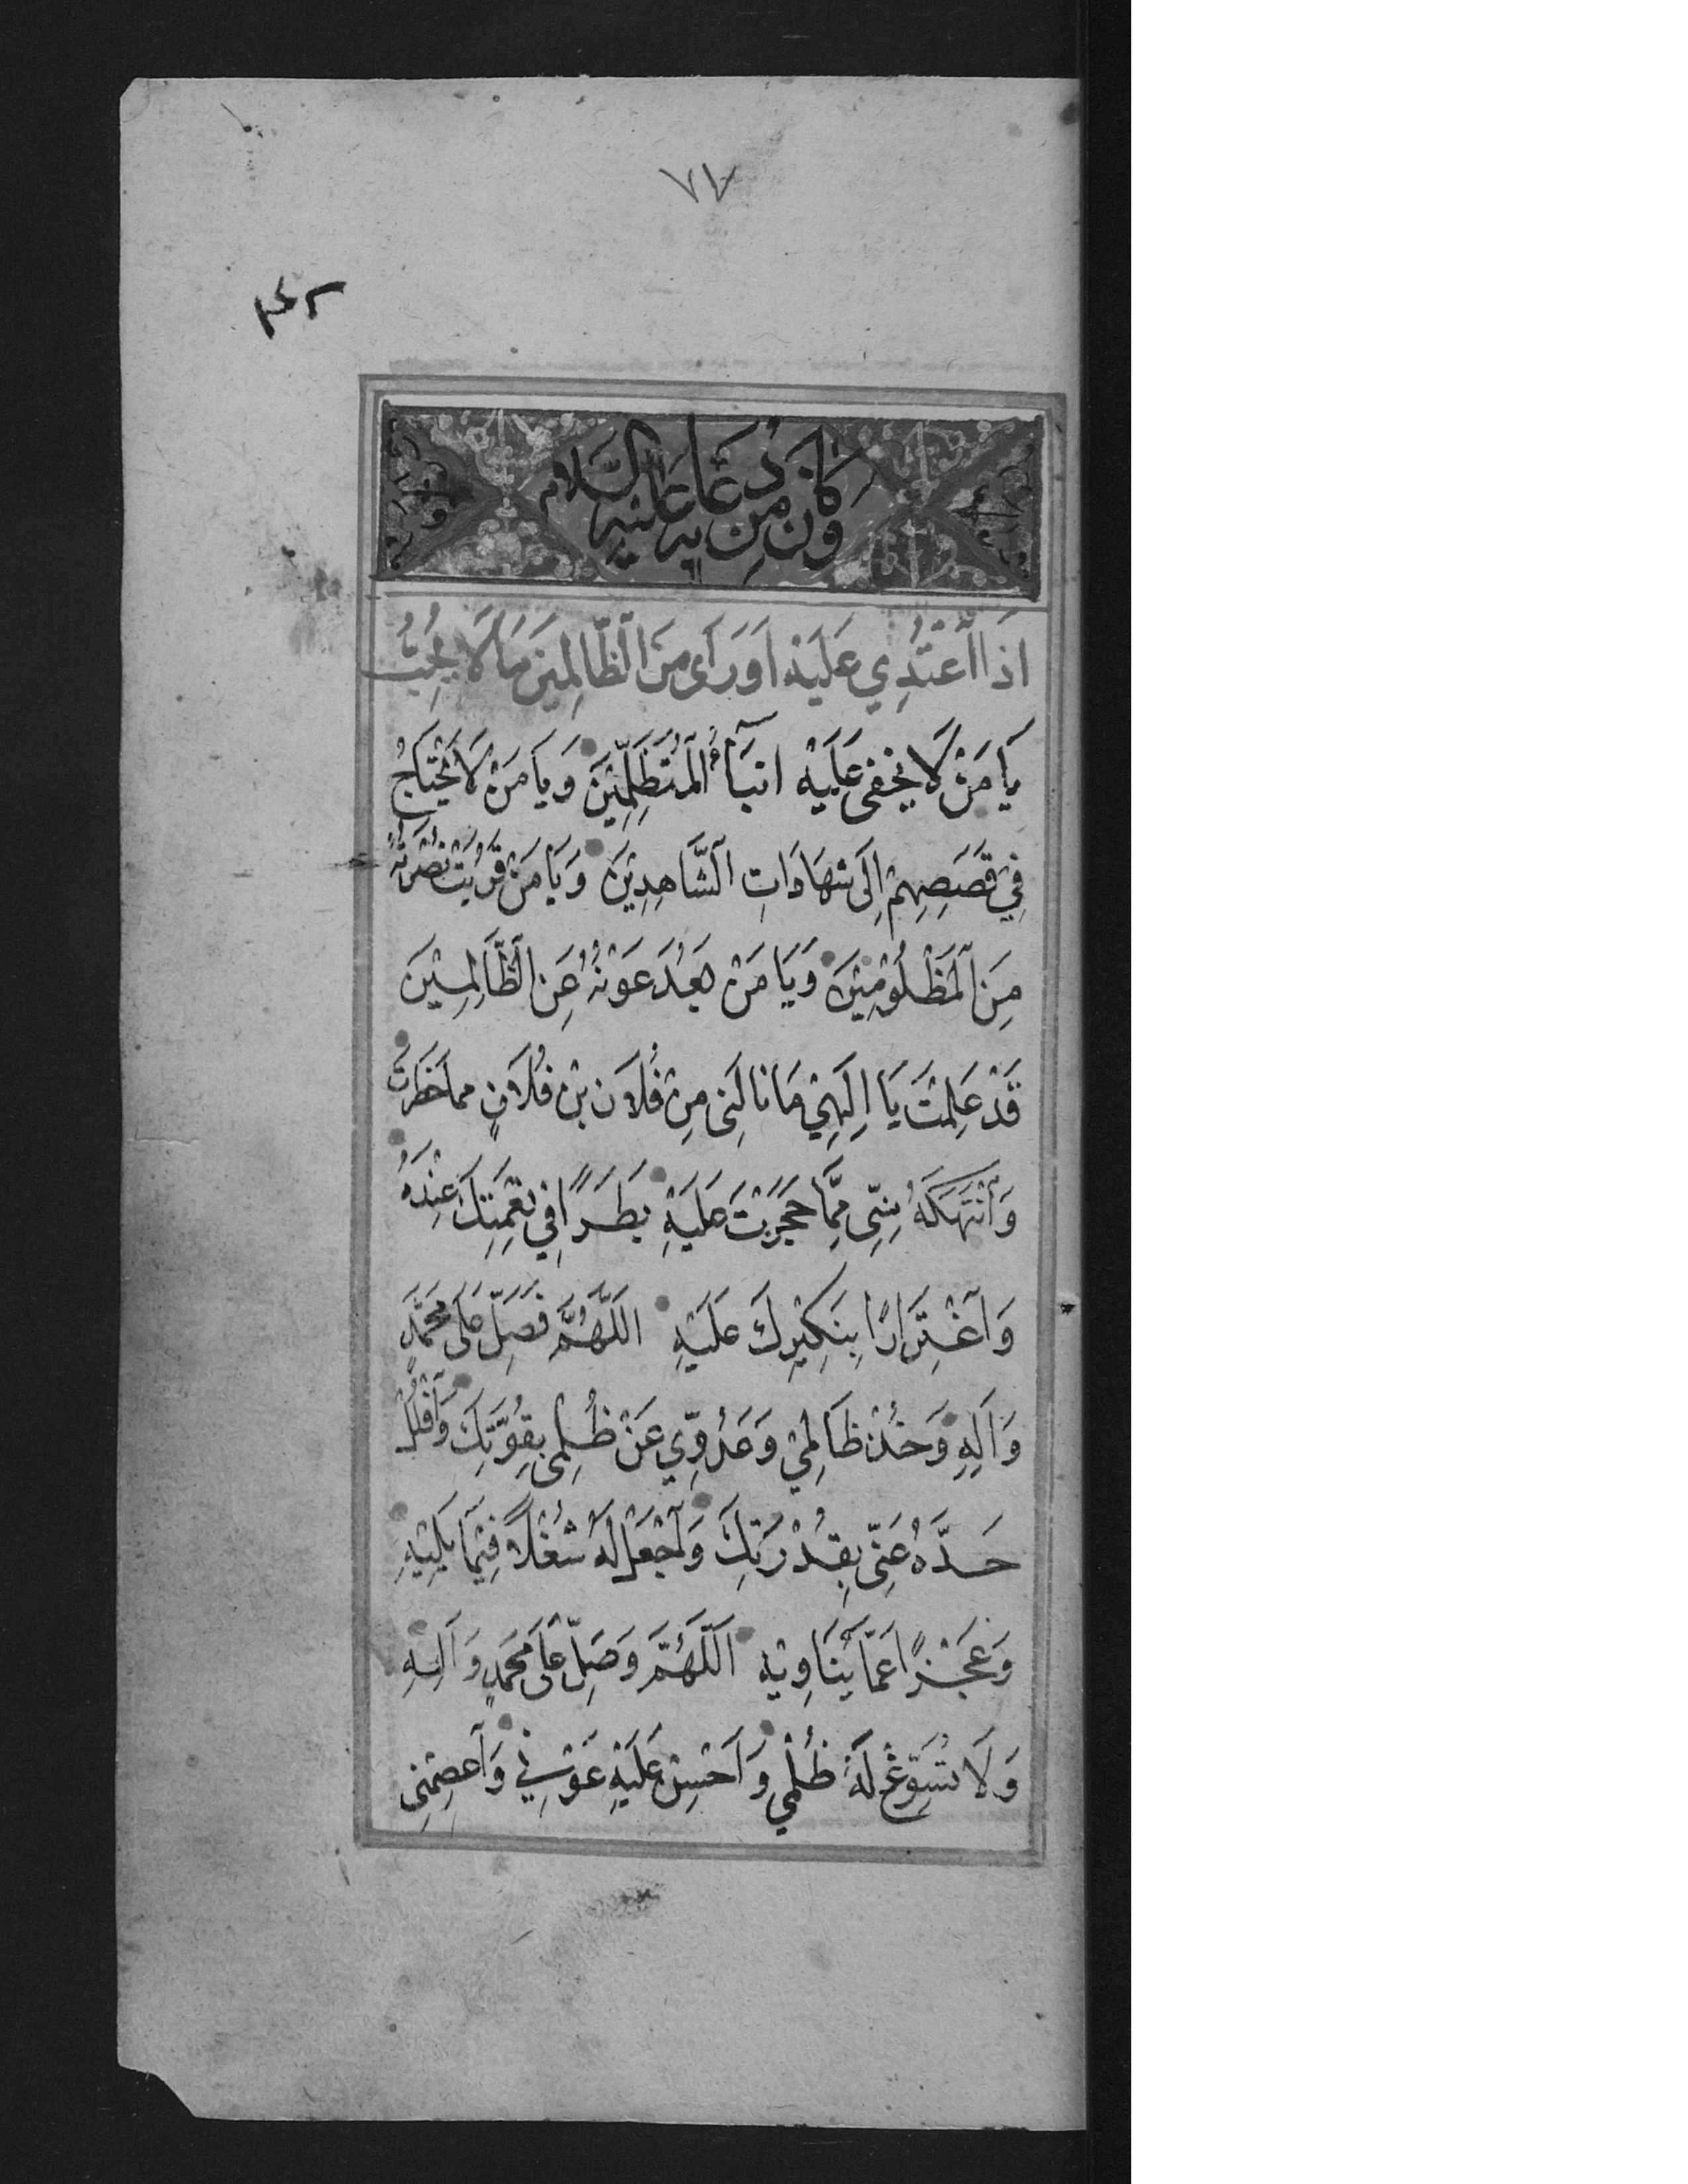 ٧٧
وَكَانَ مِنْ دُعَائِهِ عَلَيْهِ السَّلَام
اِذَا اعْتُدِيَ عَلَيْهِ اَوْ رَأى مِنَ الظَّالِمِينَ مَا لَا يُحِبُّ
يَا مَنْ لَا يَخْفى عَلَيْهِ اَنْبَآءُ الْمُتَظَلِّمِيْنَ وَيَا مَنْ لَا يَحْتَاجُ
فِيْ قَصَصِهِمْ اِلَى شَهَادَاتِ الشَّاهِدِيْنَ وَيَا مَنْ قَرُبَتْ نُصْرَتُهُ
مِنَ الْمَظْلُوْمِيْنَ وَيَا مَنْ بَعُدَ عَوْنُهُ عَنِ الظَّالِمِيْنَ
قَدْ عَلِمْتَ يَا اِلَهِيْ مَا نَالَنِى مِنْ فُلَانِ بْنِ فُلَانٍ مما حَظَرْتَ
وَانْتَهَكَهُ مِنِّى مِمَّا حَجَرْتَ عَلَيْهِ بَطَرًا فِي نِعْمَتِكَ عِنْدَهُ
وَاغْتِرَارًا بِنَكِيْرِكَ عَلَيْهِ اَللَّهُمَّ فَصَلِّ عَلَى مُحَمَّدٍ
وَاَلِهِ وَخُذْ ظَالِمِيْ وَعَدُوِّي عَنْ ظُلْمِى بِقُوَّتِكَ وَافْلُلْ
حَدَّهُ عَنِّى بِقُدْرَتِكَ وَاجْعَلْ لَهُ شُغْلًا فِيْمَا يَلِيْهِ
وَعَجْزًا عَمَّا يُنَاوِيْهِ اَللَّهُمَّ وَصَلِّ عَلَى مُحَمَّدٍ وَاَلِهِ
وَلَا تُسَوِّغْ لَهُ ظُلْمِيْ وَاَحْسِنْ عَلَيْهِ عَوْنِيْ وَاعْصِمْنِى